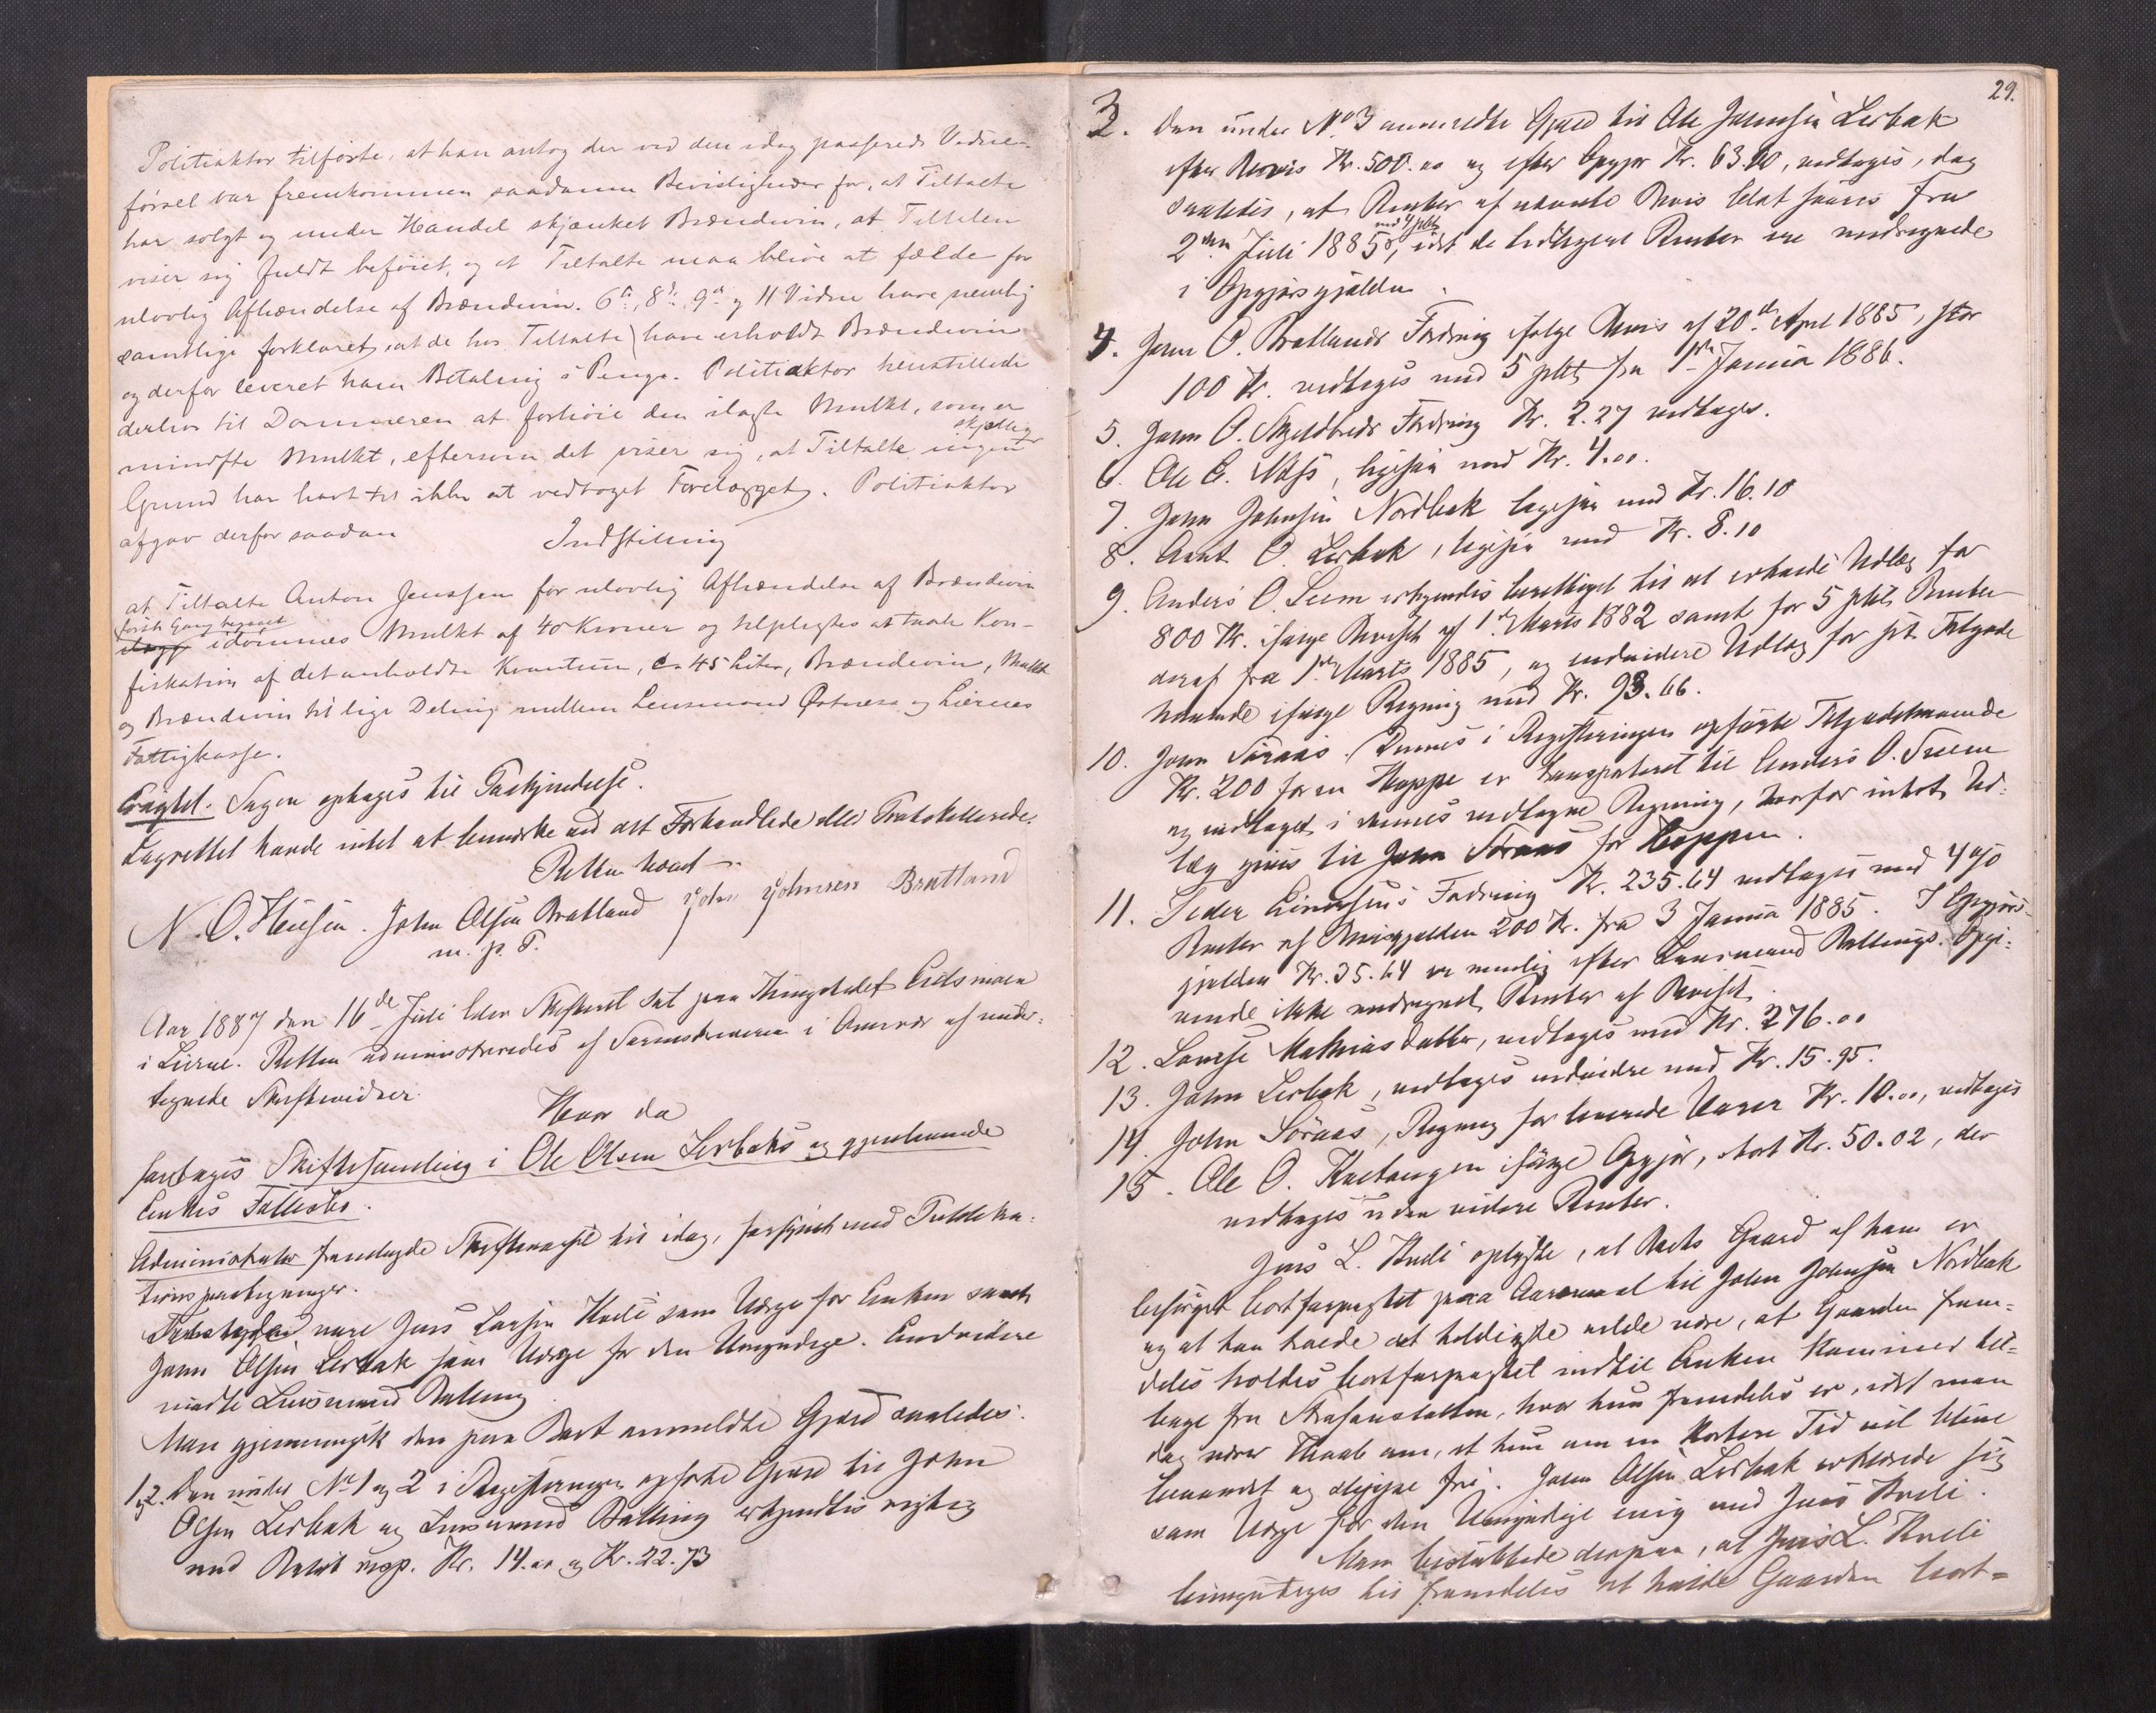 Politiaktor tilførte, at han antog der ved den idag passerede Vidne-
førsel var fremkommen saadanne Bevisligheder for, at Tiltalte
har solgt og under Handel skjænket Brændevin, at Tiltalen
viser sig fuldt beføiet, og at Tiltalte maa blive at fælde for
ulovlig Afhændelse af Brændevin. 6te, 8de, 9de og 11 Vidne have nemlig
samtlige forklaret, at de hos Tiltalte have erholdt Brændevin
og derfor leveret ham Betaling i Penge. Politiaktor henstillede
derhos til Dommeren at forhøie den ilagte Mulkt, som er
mindste Mulkt, eftersom det viser sig, at Tiltalte ingen skjellig
Grund har havt til ikke at vedtaget Forelægget. Politiaktor
afgav derfor saadan
Indstilling
at Tiltalte Anton Jenssen for ulovlig Afhændelse af Brændevin
første Gang begaaet
idømmes Mulkt af 40 Kroner og tilpligtes at taale Kon-
fiskation af det anholdte Kvantum, ca 45 Liter, Brændevin, Mulkt
og Brændevin til lige Deling mellem Lensmand Østness og Liernes
Fattigkasse.
Eragtet. Sagen optages til Paakjendelse.
Lagrettet havde intet at bemerke ved det Forhandlede eller Protokollerede.
Retten hævet
N. O. Hansen. John Olsen Bratland John Johnsen Bratland
m. p. P.
Aar 1887 den 16de Juli blev Skifteret sat paa Thingstedet Eidsmoen
i Lierne. Retten administreredes af Sorenskriveren i Overvær af under-
tegnede Skiftevidner.
Hvor da
foretoges Skiftesamling i Ole Olsen Lerbaks og gjenlevende
Enkes Fællesbo.
Administrator fremlagde Skiftevarsel til idag, forsynet med
paategninger.
Tilstede vare Jens Larsen Kveli som Værge for Enken samt
John Olsen Lerbak som Værge for den Umyndige. Endvidere
mødte Lensmand Dalling
Man gjennemgik den paa Boet anmeldte Gjæld saaledes:
1 og 2. Den under No 1 og 2 i Registreringen opførte Gjæld til John
Olsen Lerbak og Lensmand Dalling erkjendtes rigtig
med Beløb resp. Kr. 14.00 og Kr. 22.73
29.
3. Den under No 3 anmeldte Gjæld til Ole Johnsen Lerbak
efter Bevis Kr. 500.00 og efter Opgjør Kr. 63.20, vedtages, dog
saaledes, at Renter af nævnte Bevis blot svares fra
med 4 pCt
2den Juli 1885, idet de tidligere Renter ere medregnede
i Opgjørsgjælden.
4. John O. Bratlands Fordring ifølge Bevis af 20de April 1885, stor
100 Kr. vedtages med 5 pCt fra 1ste Januar 1886.
5. John O. Skjeldbreds Fordring Kr. 2.27 vedtages.
6. Ole E. , ligesaa med Kr. 4.00.
7. John Johnsen Nordbak ligesaa med Kr. 16.10
8. Arnt O. Lerbak, ligesaa med Kr. 8.10
9. Anders O. Leem erkjendes berettiget til at erholde Udlæg for
800 Kr. ifølge Bevist af 1ste Marts 1882 samt for 5 pCt Renter
deraf fra 1ste Marts 1885, og endvidere Udlæg for sit Tilgode
havende ifølge Regning med Kr. 93.66.
10. John Søraas. Dennes i Registreringen opførte Tilgodehavende
Kr. 200 for en Hoppe er transporteret til Anders O. Leem
og indtaget i dennes vedtagne Regning, hvorfor intet Ud-
læg gives til John Søraas for Hoppen.
11. Peder Fordring Kr. 235.64 vedtages med 4 %
Renter af Bevisgjælden 200 Kr. fra 3 Januar 1885. I Opgjørs-
gjælden Kr. 35.64 er nemlig efter Lensmand Dallings Opgi-
vende ikke medregnet Renter af Beviset.
12. Lovise Mathiasdatter, vedtages med Kr. 276.00
13. John Lerbak, vedtages endvidere med Kr. 15.95.
14. John Søraas, Regning for leverede Varer Kr. 10.00, vedtages
15. Ole O. ifølge Opgjør, stort Kr. 50.02, der
vedtages uden videre Renter.
Jens L. Kveli oplyste, at Boets Gaard af ham er
besørget bortforpagtet paa Aaremaal til John Johnsen Nordbak
og at han troede det heldigste vilde være, at Gaarden frem-
deles holdes bortforpagtet indtil Enken kommer til-
bage fra Strafanstalten, hvor hun fremdeles er, idet man
dog nærer Haab om, at hun om en kortere Tid vil blive
benaadet og slippe fri. John Olsen Lerbak erklærede sig
som Værge for den Umyndige enig med Jens Kveli.
Man besluttede derpaa, at Jens L. Kveli
bemyndiges til fremdeles at holde Gaarden bort-